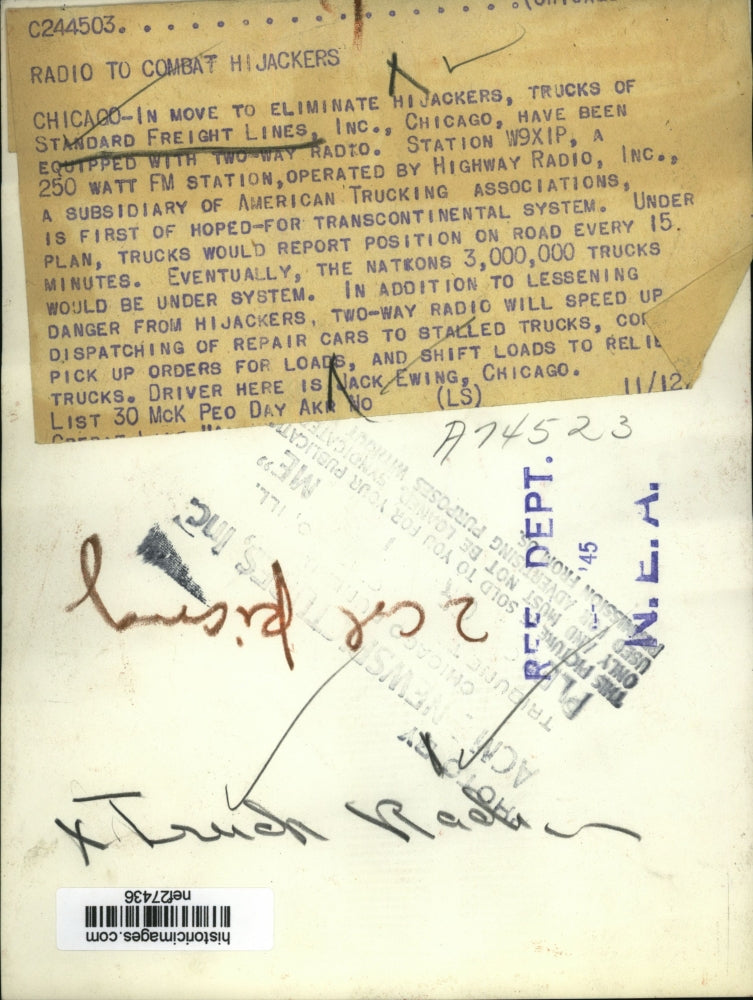 C244503. . . . . . . . . . . . . . .
RADIO TO COMBAT HIJACKERS
CHICAGO-IN MOVE TO ELIMINATE HIJACKERS, TRUCKS OF
STANDARD FREIGHT LINES, INC., CHICAGO, HAVE BEEN
EQUIPPED WITH TWO-WAY RADIO. STATION W9XIP, A
250 WATT FM STATION,OPERATED BY HIGHWAY RADIO, INC.,
A SUBSIDIARY OF AMERICAN TRUCKING ASSOCIATIONS,
IS FIRST OF HOPED-FOR TRANSCONTINENTAL SYSTEM. UNDER
PLAN, TRUCKS WOULD REPORT POSITION ON ROAD EVERY 15
MINUTES. EVENTUALLY, THE NATKONS 3,000,000 TRUCKS
WOULD BE UNDER SYSTEM. IN ADDITION TO LESSENING
DANGER FROM HIJACKERS, TWO-WAY RADIO WILL SPEED UP
DISPATCHING OF REPAIR CARS TO STALLED TRUCKS,
PICK UP ORDERS FOR LOADS, AND SHIFT LOADS TO RELIE
TRUCKS. DRIVER HERE IS JACK EWING, CHICAGO.
LIST 30 MCK PEO DAY AKR NO (LS) 11/12
A74523
REF. DEPT.
'45
N.E.A.
THIS PICTURE SOLD TO YOU FOR YOUR PUBLICATION
ONLY AND MUST NOT BE LOANED, SYNDICATED
USED FOR ADVERTISING PURPOSES WITHOUT
PHOTO BY
ACME NEWSPICTURES, Inc.
2 col
x Truck Radio
historicimages.com
nef27436